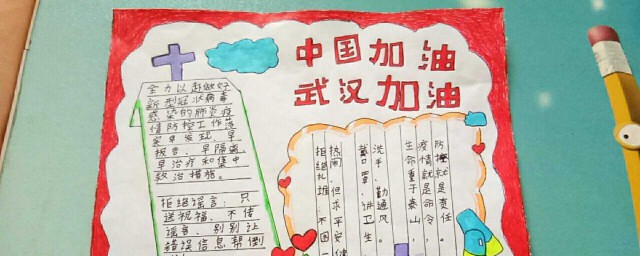 中国加油
武汉加油
全力以赴做好
新型冠状病毒
感染的肺炎疫
情防控工作落
实早发现、早
报告、早隔离、
早治疗和集中
救治措施。
拒绝谣言：只
送祝福，不传
谣言，别别让
错误信息帮倒
拒绝扎堆，不图一
热闹，但求平安健
戴口罩、讲卫生
洗手、勤通风。
生命重于泰山，
疫情就是命令，
防控就是责任。